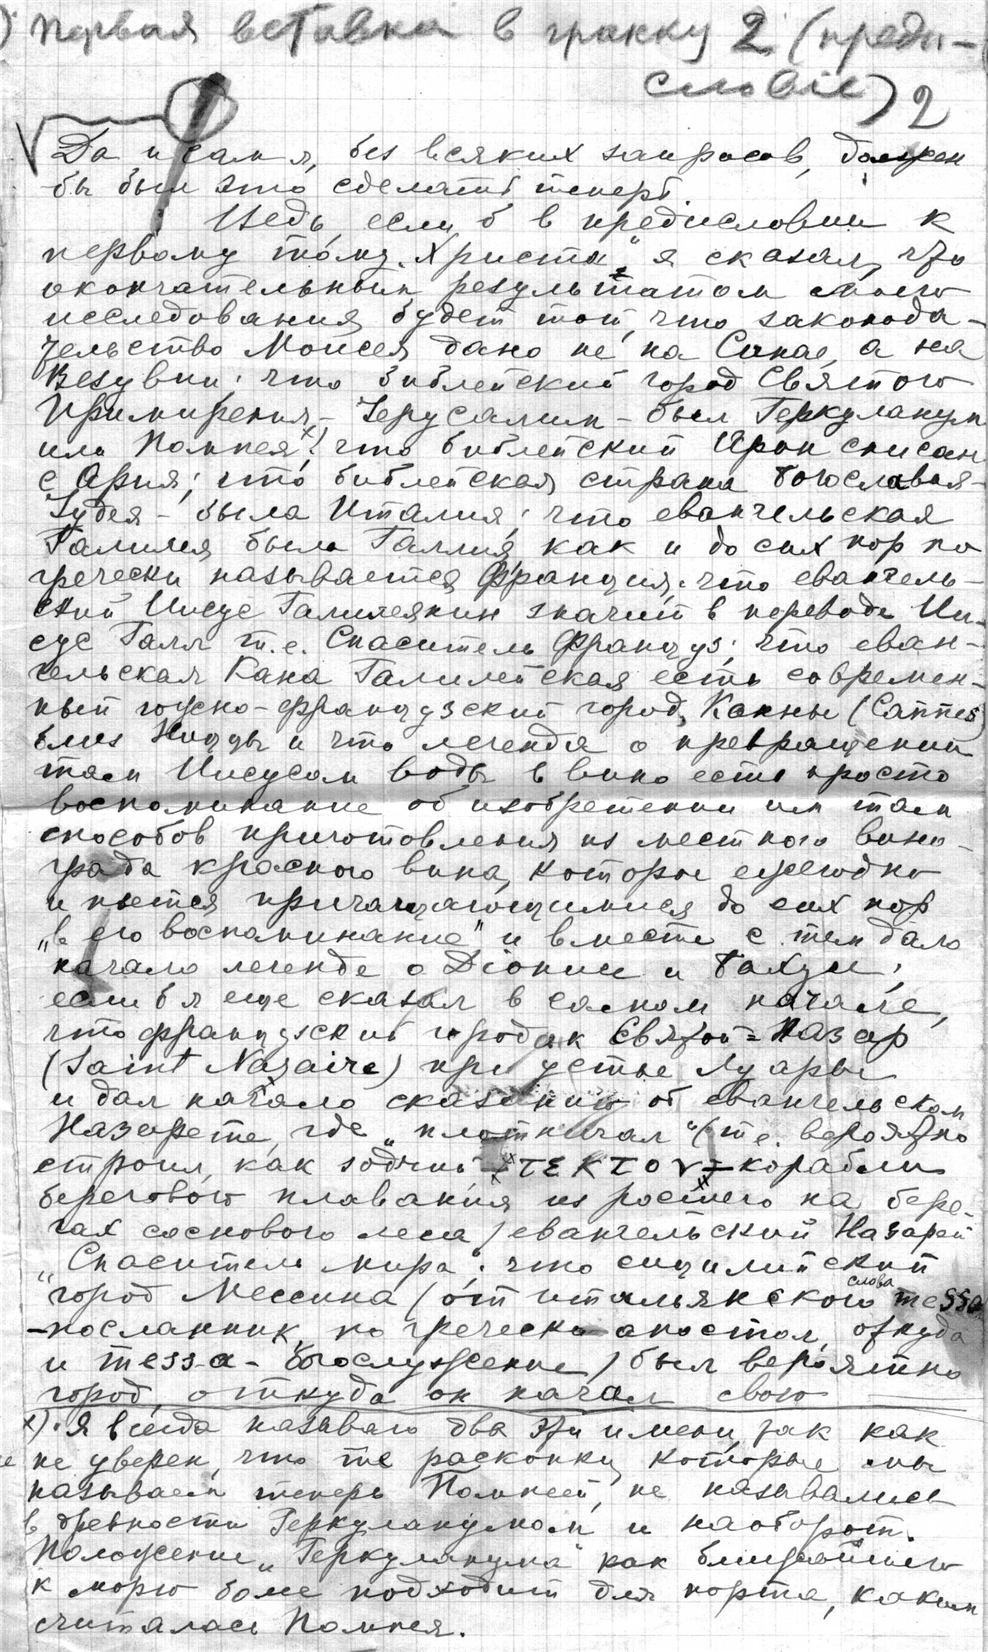 Первая вставка в гранку 2 (преди-
словие) 2
Да и сам я, без всяких запросов, должен
бы был это сделать теперь.
Ведь если б в предисловии к
первому тому „Христа“ я сказал, что
окончательным результатом моего
исследования будет то, что законода-
тельство Моисея дано не на Синае, а на
Везувии; что библейский город Святого
Примирения – Iерусалим – был Геркуланум
или Помпея x); что библейский Арон списан
с Ария; что библейская страна богославия –
Iудея – была Италия; что евангельская
Галилея была Галлия, как и до сих пор по
гречески называется Франция; что евангель-
ский Иисус Галилеянин значит в переводе Ии-
сус Галл т.е. Спаситель Француз; что еван-
гельская Кана Галилейская есть современ-
ный южно-французский город Канны (Cannes)
близ Ниццы и что легенда о превращении
там Иисусом воды в вино есть просто
воспоминание об изобретении им там
способов приготовления из местного вино-
града красного вина, которое ежегодно
и пьется причащающимися до сих пор
„в его воспоминание“ и вместе с тем дало
начало легенде о Дiонисе и Бахусе;
если б я еще сказал в самом начале,
что французский городок Святой=Назар
(Saint Nazaire) при устье Луары
и дал начало сказанию об евангельском
Назарете, где „плотничал“ (т.е. вероятно
строил, как зодчий – TEKTOV – корабли
берегового плавания из росшего на бере-
гах соснового леса) евангельский Назарей
„Спаситель мира“; что сицилийский
город Мессина (от итальянского слова messo
– посланник, по гречески апостол, откуда
и messa – богослужение) был вероятно
город, откуда он начал свою
x). Я всегда называю два эти имени, так как
не уверен, что те раскопки, которые мы
называем теперь Помпеей, не назывались
в древности Геркуланумом и наоборот.
Положение „Геркуланума“ как ближайшего
к морю более подходит для порта, каким
считалась Помпея.